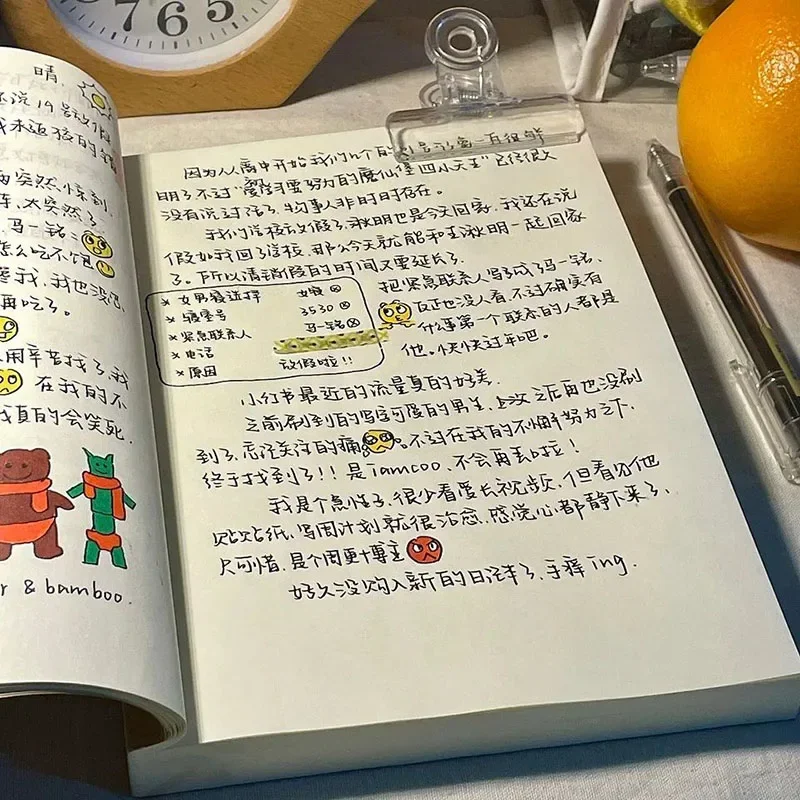 7 6 5
晴.
还说19号放假
突然,惊到.
太突然了
马一铭:
怎么吃不饱
我,我也没
再吃了.
在我的不
我真的会笑死.
r & bamboo.
因为从高中开始我们几个的
明了.不过“要努力的魔仙堡四小天王”已经很久
没有说过话了.物事人非时时存在。
我们学校放假了,湫明也是今天回家,我还在说
假如我回了学校,那么今天就能和王湫明一起回家
了。所以请销假的时间又要延长了.
* 女男寝选择 女寝
* 寝室号 3530
* 紧急联系人 马一铭
* 电话
* 原因 放假啦!!
把紧急联系人写成了马一铭.
反正也没人看.不过确实有
什么事第一个联系的人都是
他。快快过年吧。
小红书最近的流量真的好差.
之前刷到的写字可爱的男生,上次之后再也没刷
到了,忘记关注的痛。不过在我的不懈努力之下.
终于找到了!!是iamcoo.不会再丢啦!
我是个急性子,很少看漫长视频,但看见他
贴贴纸,写周计划就很治愈.感觉心都静下来了.
只可惜.是个周更博主
好久没购入新的日记本了.手痒ing.